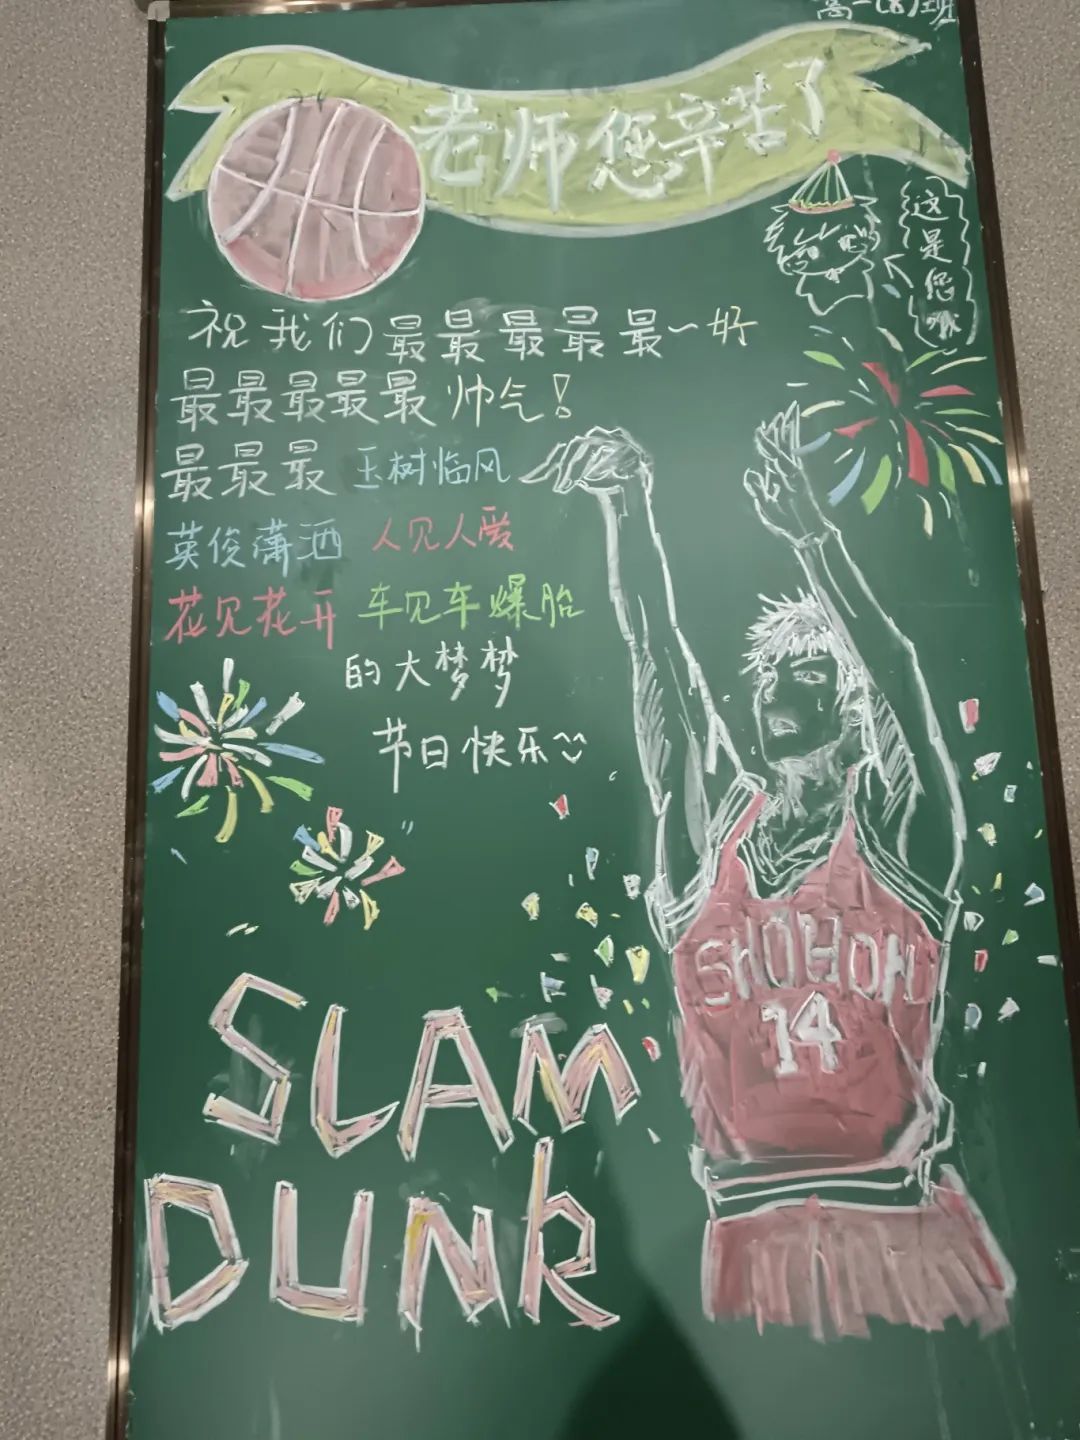 高一(8)班
老师您辛苦了
这是您哦
祝我们最最最最最~好
最最最最最帅气!
最最最 玉树临风
英俊潇洒 人见人爱
花见花开 车见车爆胎
的大梦梦
节日快乐
SHOHOH
14
SLAM
DUNK